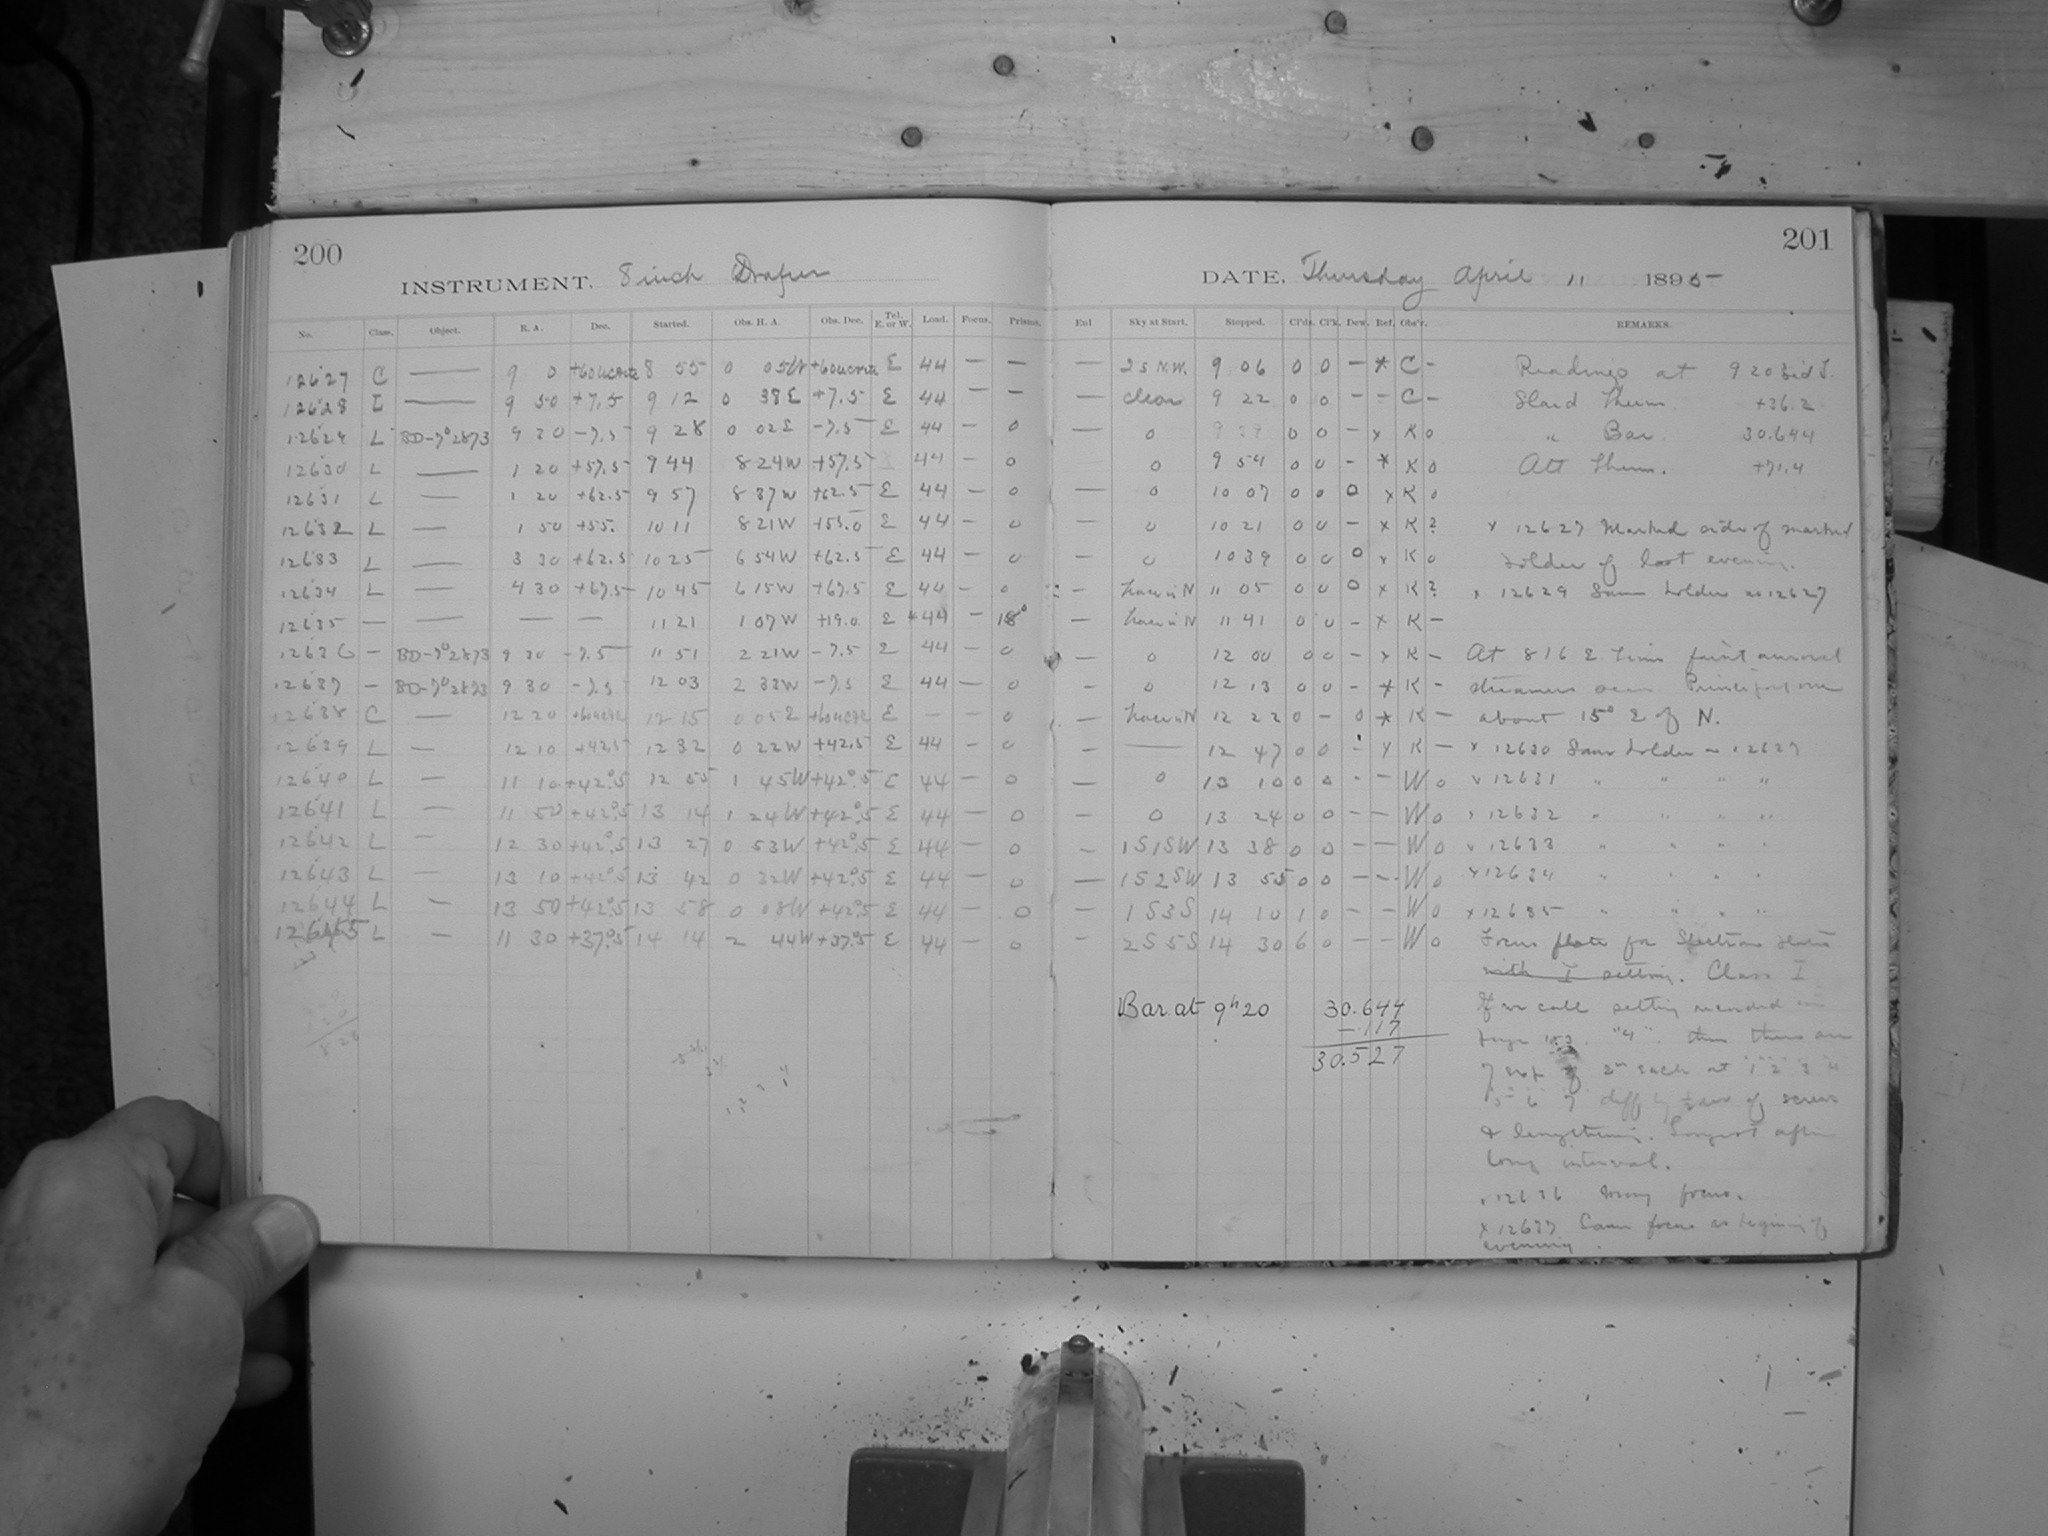 200
INSTRUMENT. 8 inch Draper
No. Class. Object. R. A. Dec. Started. Obs. H. A. Obs. Dec. Tel. E. or W. Load. Focus. Prisms.
12627 C — 9 0 8 55 0 05W E 44 — —
12628 — 9 50 +7.5 9 12 0 38E +7.5 E 44 — —
12629 L BD-7°2873 9 30 -7.5 9 28 0 02E -7.5 E 44 — 0
12630 L — 1 20 +57.5 9 44 8 24W +57.5 44 — 0
12631 L — 1 20 +62.5 9 57 8 37W +62.5 E 44 — 0
12632 L — 1 50 +55. 10 11 8 21W +55.0 E 44 — 0
12633 L — 3 30 +62.5 10 25 6 54W +62.5 E 44 — 0
12634 L — 4 30 +67.5 10 45 6 15W +67.5 E 44 — 0
12635 — — — — 11 21 1 07W +19.0 E 44 — 18°
12636 — BD-7°2873 9 30 -7.5 11 51 2 21W -7.5 E 44 — 0
12637 — BD-7°2873 9 30 -7.5 12 03 2 33W -7.5 E 44 — 0
12638 C — 12 20 12 15 0 05E E — — 0
12639 L — 12 10 +42.5 12 32 0 22W +42.5 E 44 — 0
12640 L — 11 10 +42°.5 12 55 1 45W +42°.5 E 44 — 0
12641 L — 11 50 +42°.5 13 14 1 24W +42°.5 E 44 — 0
12642 L — 12 30 +42°.5 13 27 0 53W +42°.5 E 44 — 0
12643 L — 13 10 +42°.5 13 42 0 32W +42°.5 E 44 — 0
12644 L — 13 50 +42°.5 13 58 0 08W +42°.5 E 44 — 0
12645 L — 11 30 +37°.5 14 14 2 44W +37°.5 E 44 — 0
201
DATE, Thursday April 11 1895
Enl Sky at Start. Stopped. Cl'ds. Cl'k. Dew. Ref. Obs'r. REMARKS.
— 2 S N.W. 9 06 0 0 — * C —
— clear 9 22 0 0 — — C —
— 0 0 0 — x K 0
0 9 54 0 0 — * K 0
— 0 10 07 0 0 0 x K 0
— 0 10 21 0 0 — x K ?
— 0 10 39 0 0 0 x K 0
— 11 05 0 0 0 x K ?
— 11 41 0 0 — x K —
— 0 12 00 0 0 — x K —
— 0 12 13 0 0 — * K —
12 22 0 — 0 * K —
— — 12 47 0 0 x K —
— 0 13 10 0 0 — — W 0
— 0 13 24 0 0 — — W 0
— 1S1SW 13 38 0 0 — — W 0
— 1S2SW 13 55 0 0 — — W 0
1S3S 14 10 1 0 — — W 0
— 2S5S 14 30 6 0 — — W 0
Readings at 9 20 Sid T.
Stand Therm. +36.2
" Bar. 30.644
Att Therm. +71.4
x 12627 Marked side of marked
holder of last evening.
x 12629 Same holder as 12627
At 8 16 E time faint auroral
streamers seen Principal one
about 15° E of N.
x 12630 Same holder as 12627
x 12631 " " " "
x 12632 " " " "
x 12633 " " " "
x 12634 " " " "
x 12635 " " " "
Focus plate for Spectrum
with I setting. Class I
If we call setting recorded on
"4" then there are
7 exp of 2m each at 1 2 3 4
5 6 7 diff by of screw
& lengthening. Longest after
long interval.
x 12636 Wrong focus.
x 12637 Same focus as begining of
evening.
Bar. at 9h20 30.644
-.117
30.527